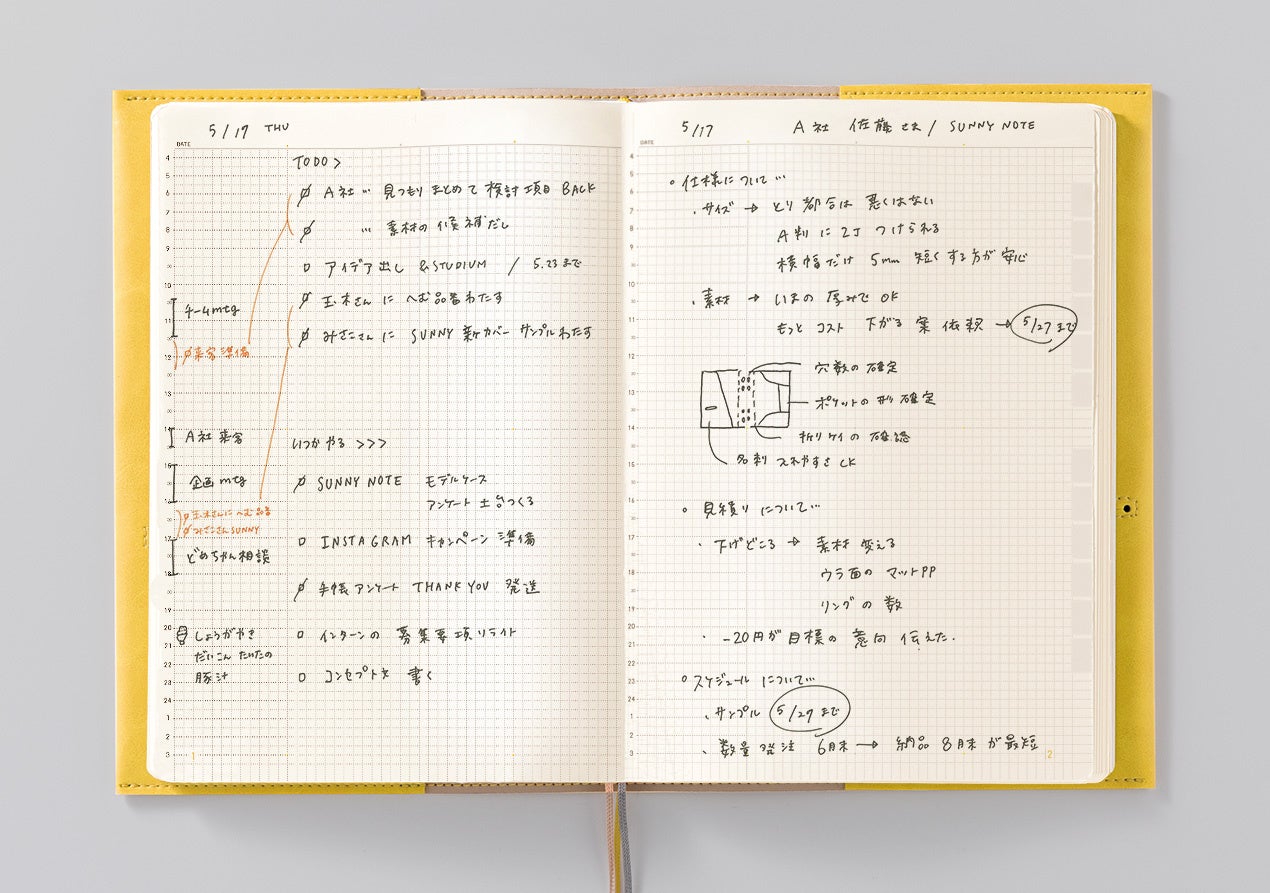 5/17 THU
DATE
TODO >
A社 … 見つもりまとめて検討項目 BACK
… 素材の候補だし
アイデア出し &STUDIUM / 5.23まで
玉木さんに へむ品番わたす
みさこさんに SUNNY 新カバー サンプルわたす
いつかやる >>>
SUNNY NOTE モデルケース
アンケート 土台つくる
INSTAGRAM キャンペーン 準備
手帳アンケート THANK YOU 発送
インターンの 募集要項リライト
コンセプト文 書く
チームmtg
来客準備
A社 来客
企画mtg
玉木さんに へむ品番
みさこさんSUNNY
どめちゃん相談
しょうがやき
だいこん たいたの
豚汁
4
5
6
7
8
9
10
11
12
13
14
15
16
17
18
19
20
21
22
23
24
1
2
3
1
5/17 A社 佐藤さま / SUNNY NOTE
DATE
仕様について…
・サイズ → とり都合は 悪くはない
A判に2丁 つけられる
横幅だけ 5mm 短くする方が安心
・素材 → いまの厚みでOK
もっと コスト 下がる 案 依頼 → 5/27まで
穴数の確定
ポケットの形 確定
折りケイの確認
名刺 入れやすさ CK
見積りについて…
・下げどころ → 素材 変える
ウラ面の マットPP
リングの数
・-20円が目標の意向 伝えた.
スケジュールについて…
・サンプル 5/27まで
・数量発注 6月末 → 納品 8月末が最短
4
5
6
7
8
9
10
11
12
13
14
15
16
17
18
19
20
21
22
23
24
1
2
3
2